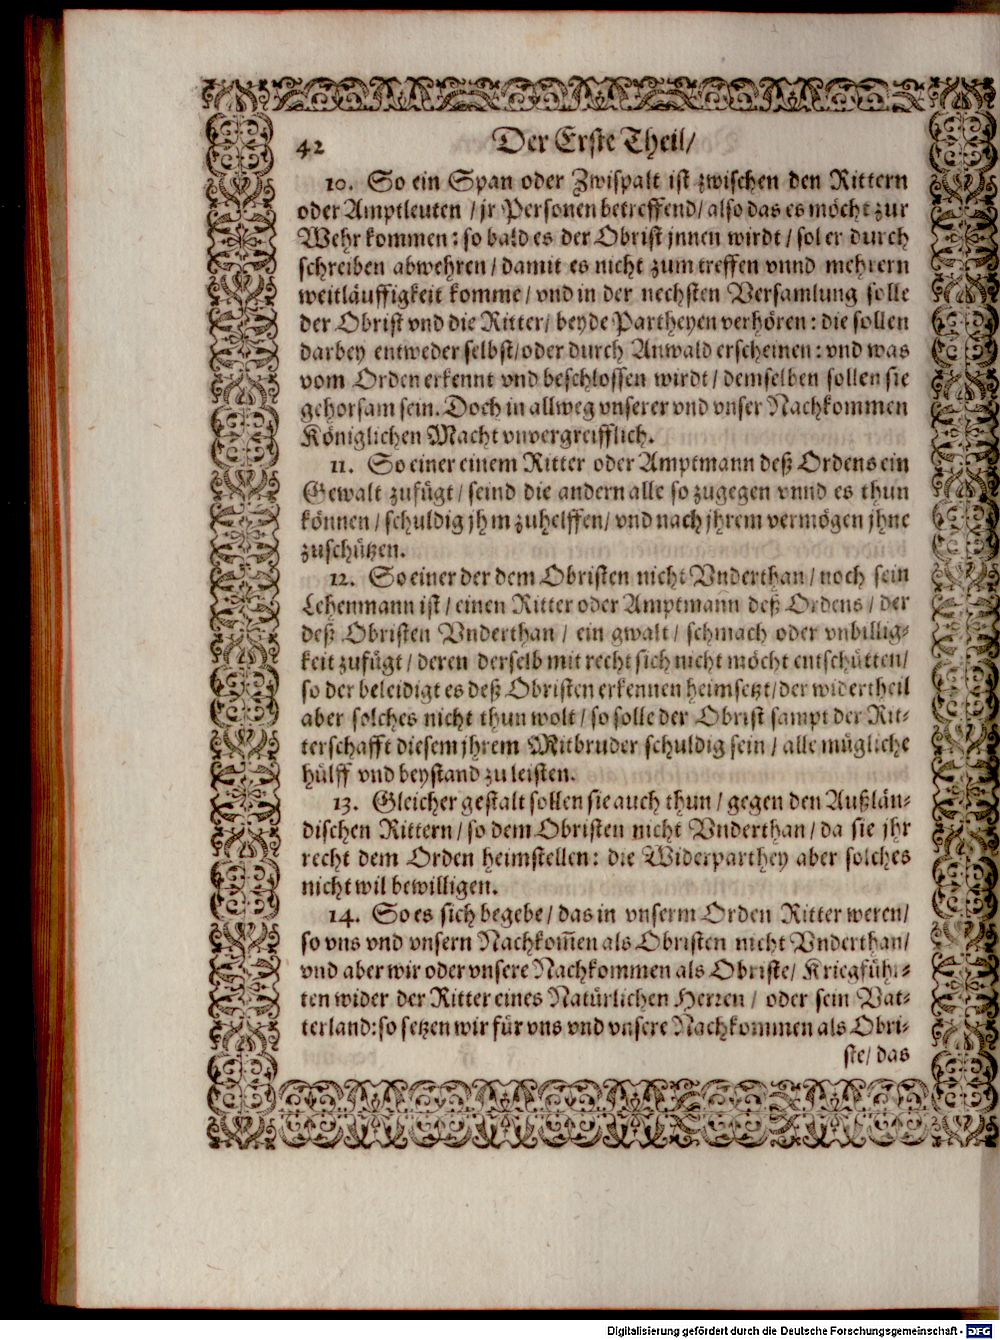 42 Der Erste Theil/
10. So ein Span oder Zwispalt ist zwischen den Rittern
oder Amptleuten / jr Personen betreffend/ also das es möcht zur
Wehr kommen: so bald es der Obrist jnnen wirdt / sol er durch
schreiben abwehren / damit es nicht zum treffen vnnd mehrern
weitläuffigkeit komme / vnd in der nechsten Versamlung solle
der Obrist vnd die Ritter/ beyde Partheyen verhören: die sollen
darbey entweder selbst/ oder durch Anwald erscheinen: vnd was
vom Orden erkennt vnd beschlossen wirdt / demselben sollen sie
gehorsam sein. Doch in allweg vnserer vnd vnser Nachkommen
Königlichen Macht vnvergreifflich.
11. So einer einem Ritter oder Amptmann deß Ordens ein
Gewalt zufügt / seind die andern alle so zugegen vnnd es thun
können / schuldig jhm zuhelffen/ vnd nach jhrem vermögen jhne
zuschützen.
12. So einer der dem Obristen nicht Vnderthan / noch sein
Lehenmann ist / einen Ritter oder Amptmann deß Ordens / der
deß Obristen Vnderthan / ein gwalt / schmach oder vnbillig-
keit zufügt / deren derselb mit recht sich nicht möcht entschütten/
so der beleidigt es deß Obristen erkennen heimsetzt/ der widertheil
aber solches nicht thun wolt / so solle der Obrist sampt der Rit-
terschafft diesem jhrem Mitbruder schuldig sein / alle mügliche
hülff vnd beystand zu leisten.
13. Gleicher gestalt sollen sie auch thun / gegen den Außlän-
dischen Rittern / so dem Obristen nicht Vnderthan / da sie jhr
recht dem Orden heimstellen: die Widerparthey aber solches
nicht wil bewilligen.
14. So es sich begebe / das in vnserm Orden Ritter weren/
so vns vnd vnsern Nachkom̄en als Obristen nicht Vnderthan/
vnd aber wir oder vnsere Nachkommen als Obriste/ Krieg führ-
ten wider der Ritter eines Natürlichen Herren / oder sein Vat-
terland: so setzen wir für vns vnd vnsere Nachkommen als Obri-
ste/ das
Digitalisierung gefördert durch die Deutsche Forschungsgemeinschaft - DFG